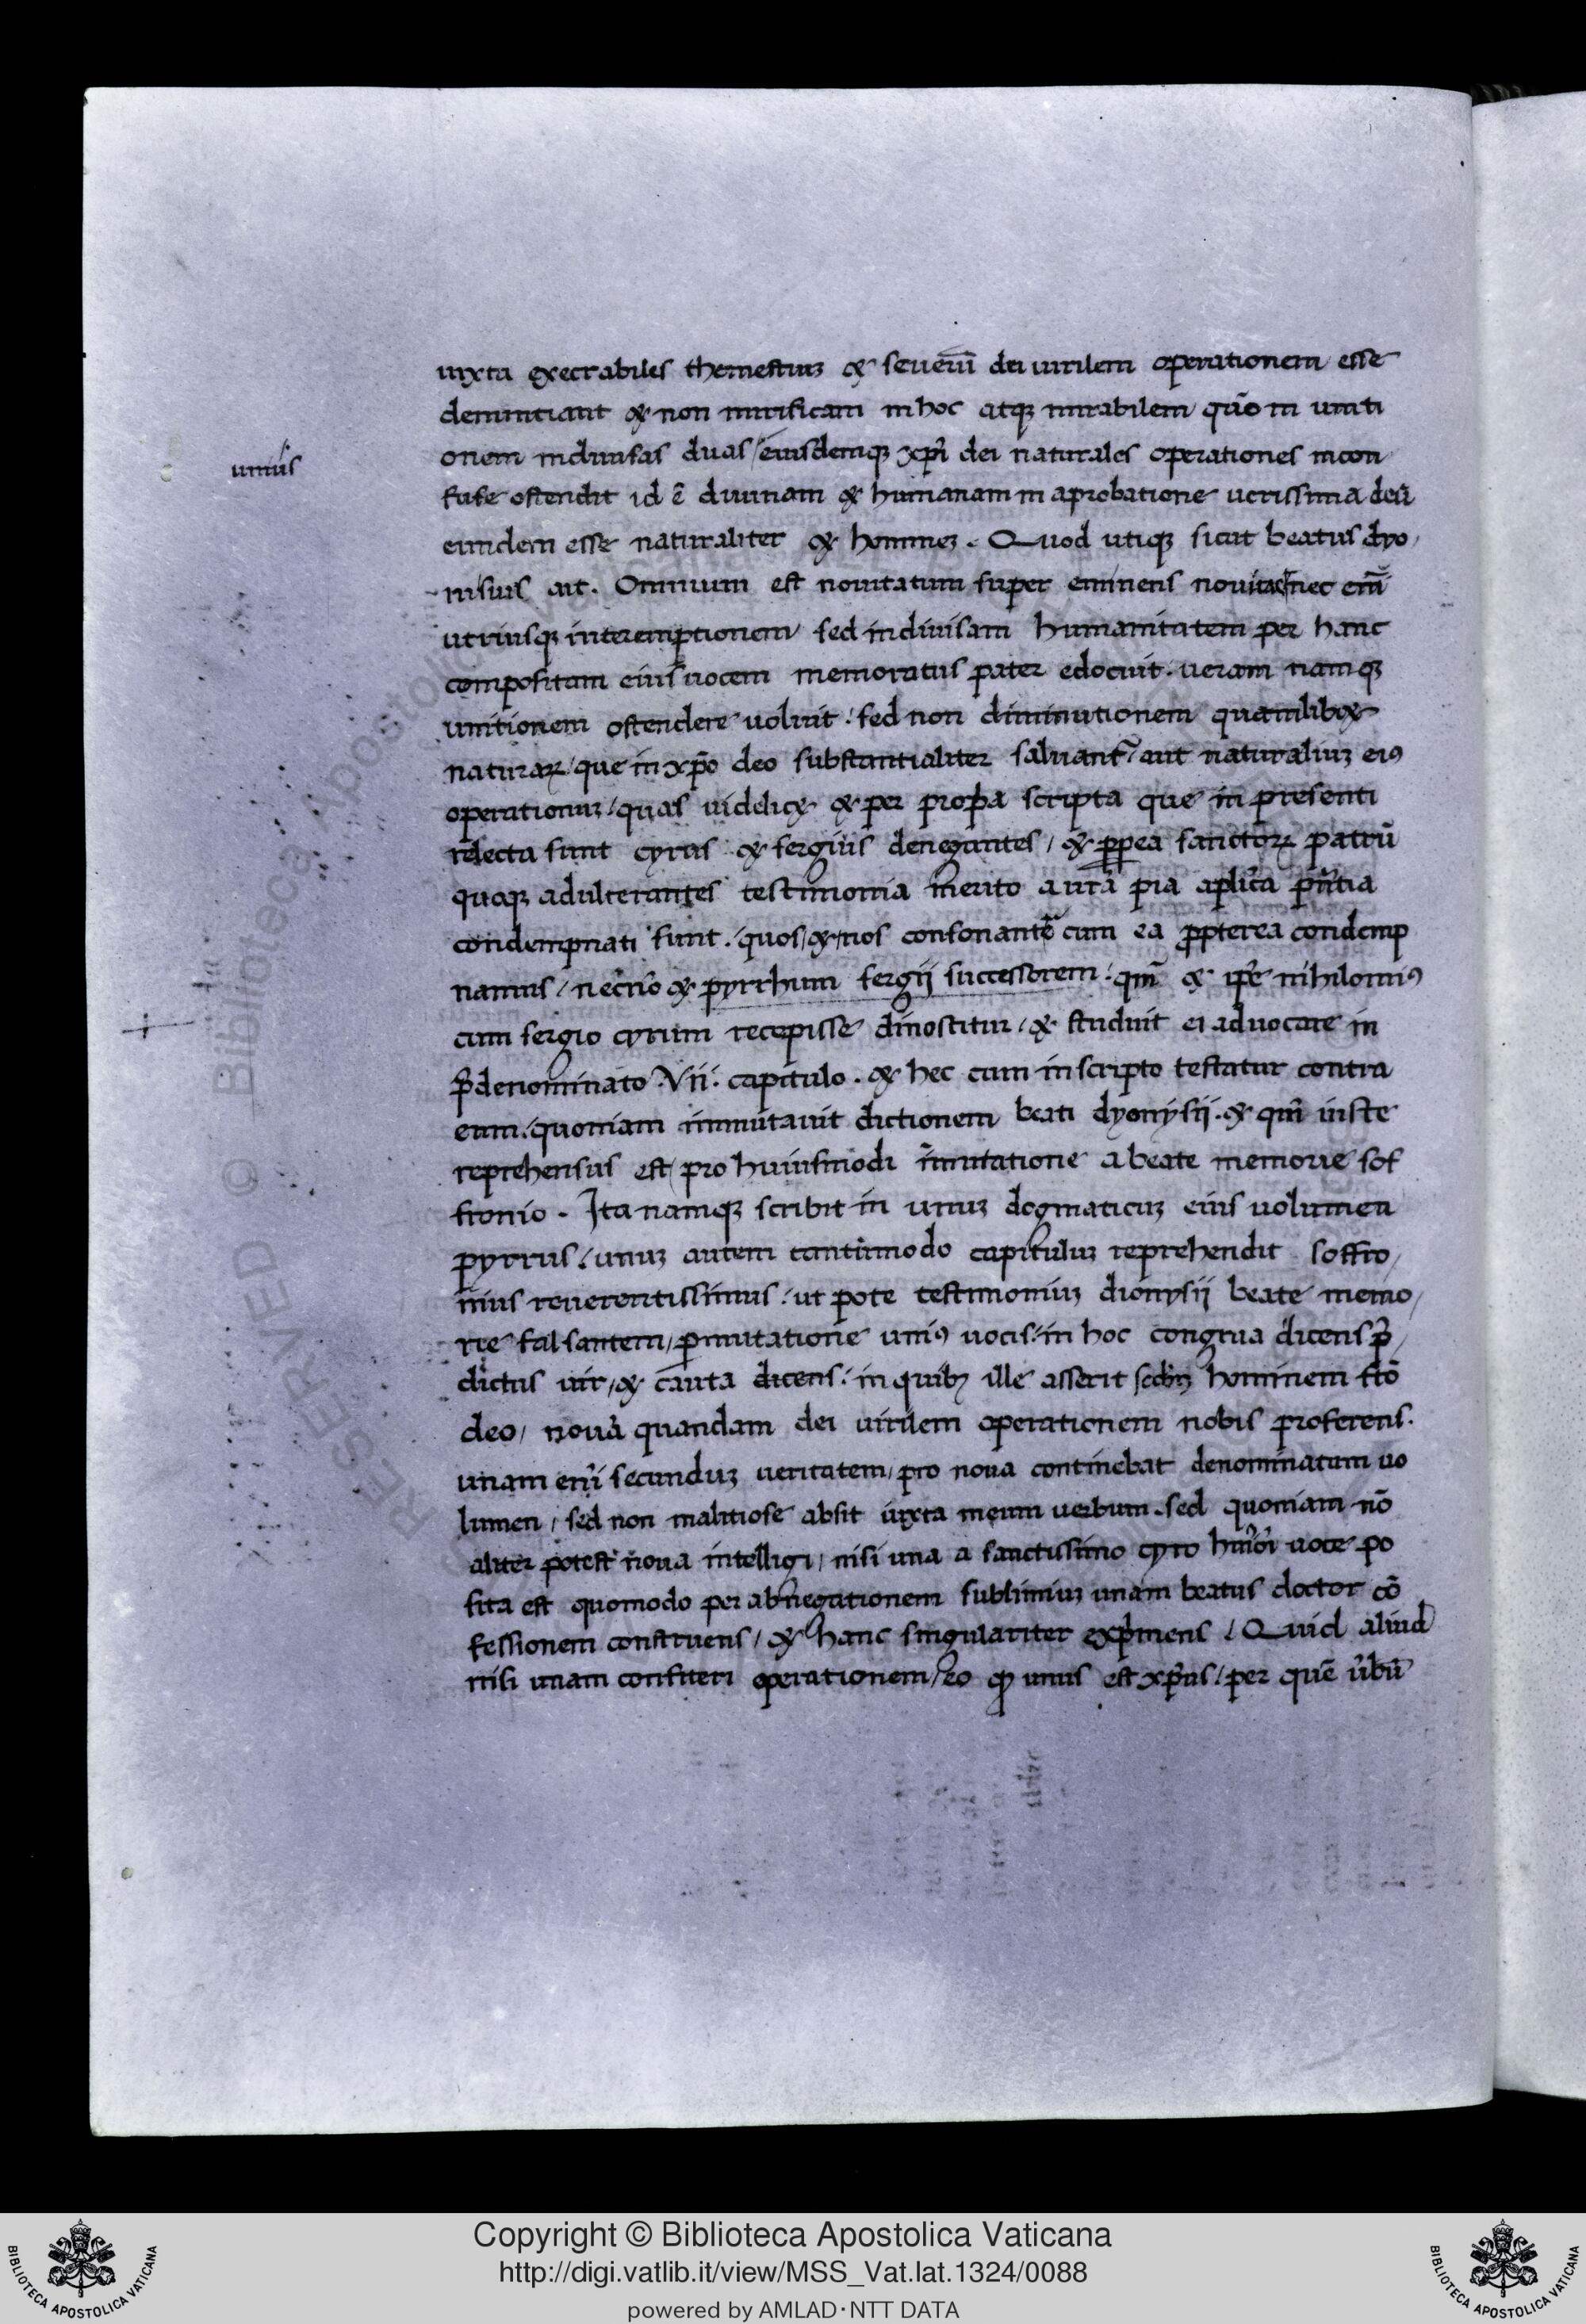 iuxta execrabiles themestiuz & seuerū dei uirilem operationem esse
denuntiant & non mirificam in hoc atqz mirabilem quō in uniti
onem indiuisas duas / eiusdemqz xpī dei naturales operationes incon
unius
fuse ostendit id ē diuinam & humanam in aprobatione uerissima deū
eundem esse naturaliter & hominez. Quod utiqz sicut beatus dyo,
nisius ait. Omnium est nouitatum super eminens nouitas nec enī
utriusqz interemptionem sed indiuisam humanitatem per hanc
compositam eius uocem memoratus pater edocuit. ueram namqz
unitionem ostendere uoluit: sed non diminutionem quamlib&
naturaꝝ / que in xpō deo substantialiter saluant᷑ aut naturaliuz eiꝰ
operationuz / quas uidelic& & per propͥa scripta que in presenti
relecta sunt cyrus & sergius denegantes / & ꝓpea sanctoꝝ patrū
quoqz adulterantes testimonia merito a urā pia aplīca pñtia
condempnati sunt. quos / & nos consonantē cum ea ꝓpterea condemp
namus / necnō & pyrrhum sergij successorem: qm̄ & ipse nihilomiꝰ
cum sergio cyrum recepisse dinoscitur / & studuit ei aduocare in
p̄denominato .Vii. capitulo. & hec cum inscripto testatur contra
eum. quoniam immutauit dictionem beati dyonysij. & qm̄ iuste
reprehensus est / pro huiusmodi īmutatione a beate memorie sof
fronio. Ita namqz scribit in unuz dogmaticuz eius uolumen
pyrrus: unuz autem tantūmodo capituluz reprehendit soffro,
nius reuerentissimus: ut pote testimoniuz dionysij beate memo,
rie falsantem / ꝑmutatione uniꝰ uocis: in hoc congrua dicens p̄,
dictus uir, & cauta dicens: in quibꝫ ille asserit hominem fcō
deo, nouā quandam dei uirilem operationem nobis proferens.
unam enī secunduz ueritatem, pro noua continebat denominatum uo
lumen, sed non malitiose absit iuxta meum uerbum. sed quoniam nō
aliter potest noua intelligi, nisi una a sanctissimo cyro uoce po
sita est quomodo per abnegationem sublimiuz unam beatus doctor cō
fessionem construens / & hanc singulariter exp̄mens / Quid aliud
nisi unam confiteri operationem / eo ꝙ unus est xp̄us / per quē ūbū
Copyright © Biblioteca Apostolica Vaticana
http://digi.vatlib.it/view/MSS_Vat.lat.1324/0088
powered by AMLAD·NTT DATA
BIBLIOTECA APOSTOLICA VATICANA
BIBLIOTECA APOSTOLICA VATICANA